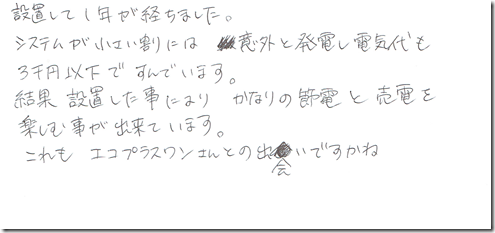 設置して1年が経ちました。
システムが小さい割には 意外と発電し電気代も
3千円以下ですんでいます。
結果 設置した事により かなりの節電と売電を
楽しむ事が出来ています。
これも エコプラスワンさんとの出会いですかね